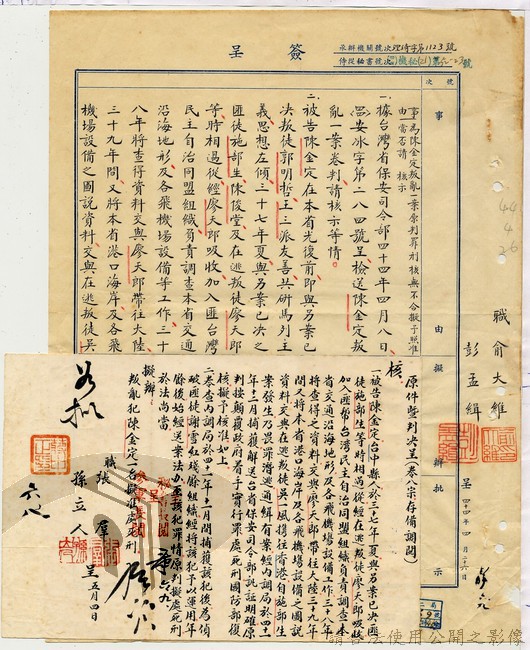 簽呈
承辦機關號次理琦字第1123號
侍從秘書號次
號次
事由擬辦批示
事由 為陳金定叛亂一案原判罪刑核無不合擬予照准當否請 核示
一、據台灣省保安司令部四十四年四月八日
安冰字第二八四號呈檢送陳金定叛
亂一案卷判請核示等情。
二、被告陳金定在本省光復前即與另案已
決叛徒郭明哲王三派友善共研馬列主
義思想左傾三十七年夏與另案已決之
匪徒施部生陳俊堂及在逃叛徒廖天郎
等時相過從經廖天郎吸收加入匪台灣
民主自治同盟組織負責調查本省交通
沿海地形及各飛機場設備等工作三十
八年將查得資料交與廖天郎帶往大陸
三十九年間又將本省港口海岸及各飛
機場設備之圖說資料交與在逃叛徒吳
職 俞大維
彭孟緝
呈 四十四年四月二十六日
44
4
26
一、原件暨判決呈(卷八宗存備調閱)
核
一、被告陳金定台中縣人於三十七年夏與另案已決匪
徒施部生等時相過從經在逃叛徒廖天郎吸收
加入匪幫台灣民主自治同盟組織負責調查本
省交通沿海地形及各飛機場設備工作三十八年
將查得之資料交與廖天郎帶往大陸三十九年
間又將本省港口海岸及各飛機場設備之圖說
資料交與在逃叛徒吳一風携往香港自施部生
案發生乃畏罪潛逃通緝有案經內調局於四十一
年十二月捕獲解送台省保安司令部訊証明確原
判按顛覆政府着手實行罪處死刑國防部復
核擬予核准如上
二、卷查內調局於四十一年十二月間捕獲該犯後為偵
破匪徒謝雪紅殘餘組織經將該犯予以運用年
餘後始經送案法辦在案該犯罪情原判擬處死刑
於法尚當
擬辦
叛亂犯陳金定一名擬准處死刑
職 張群
孫立人
呈 五月四日